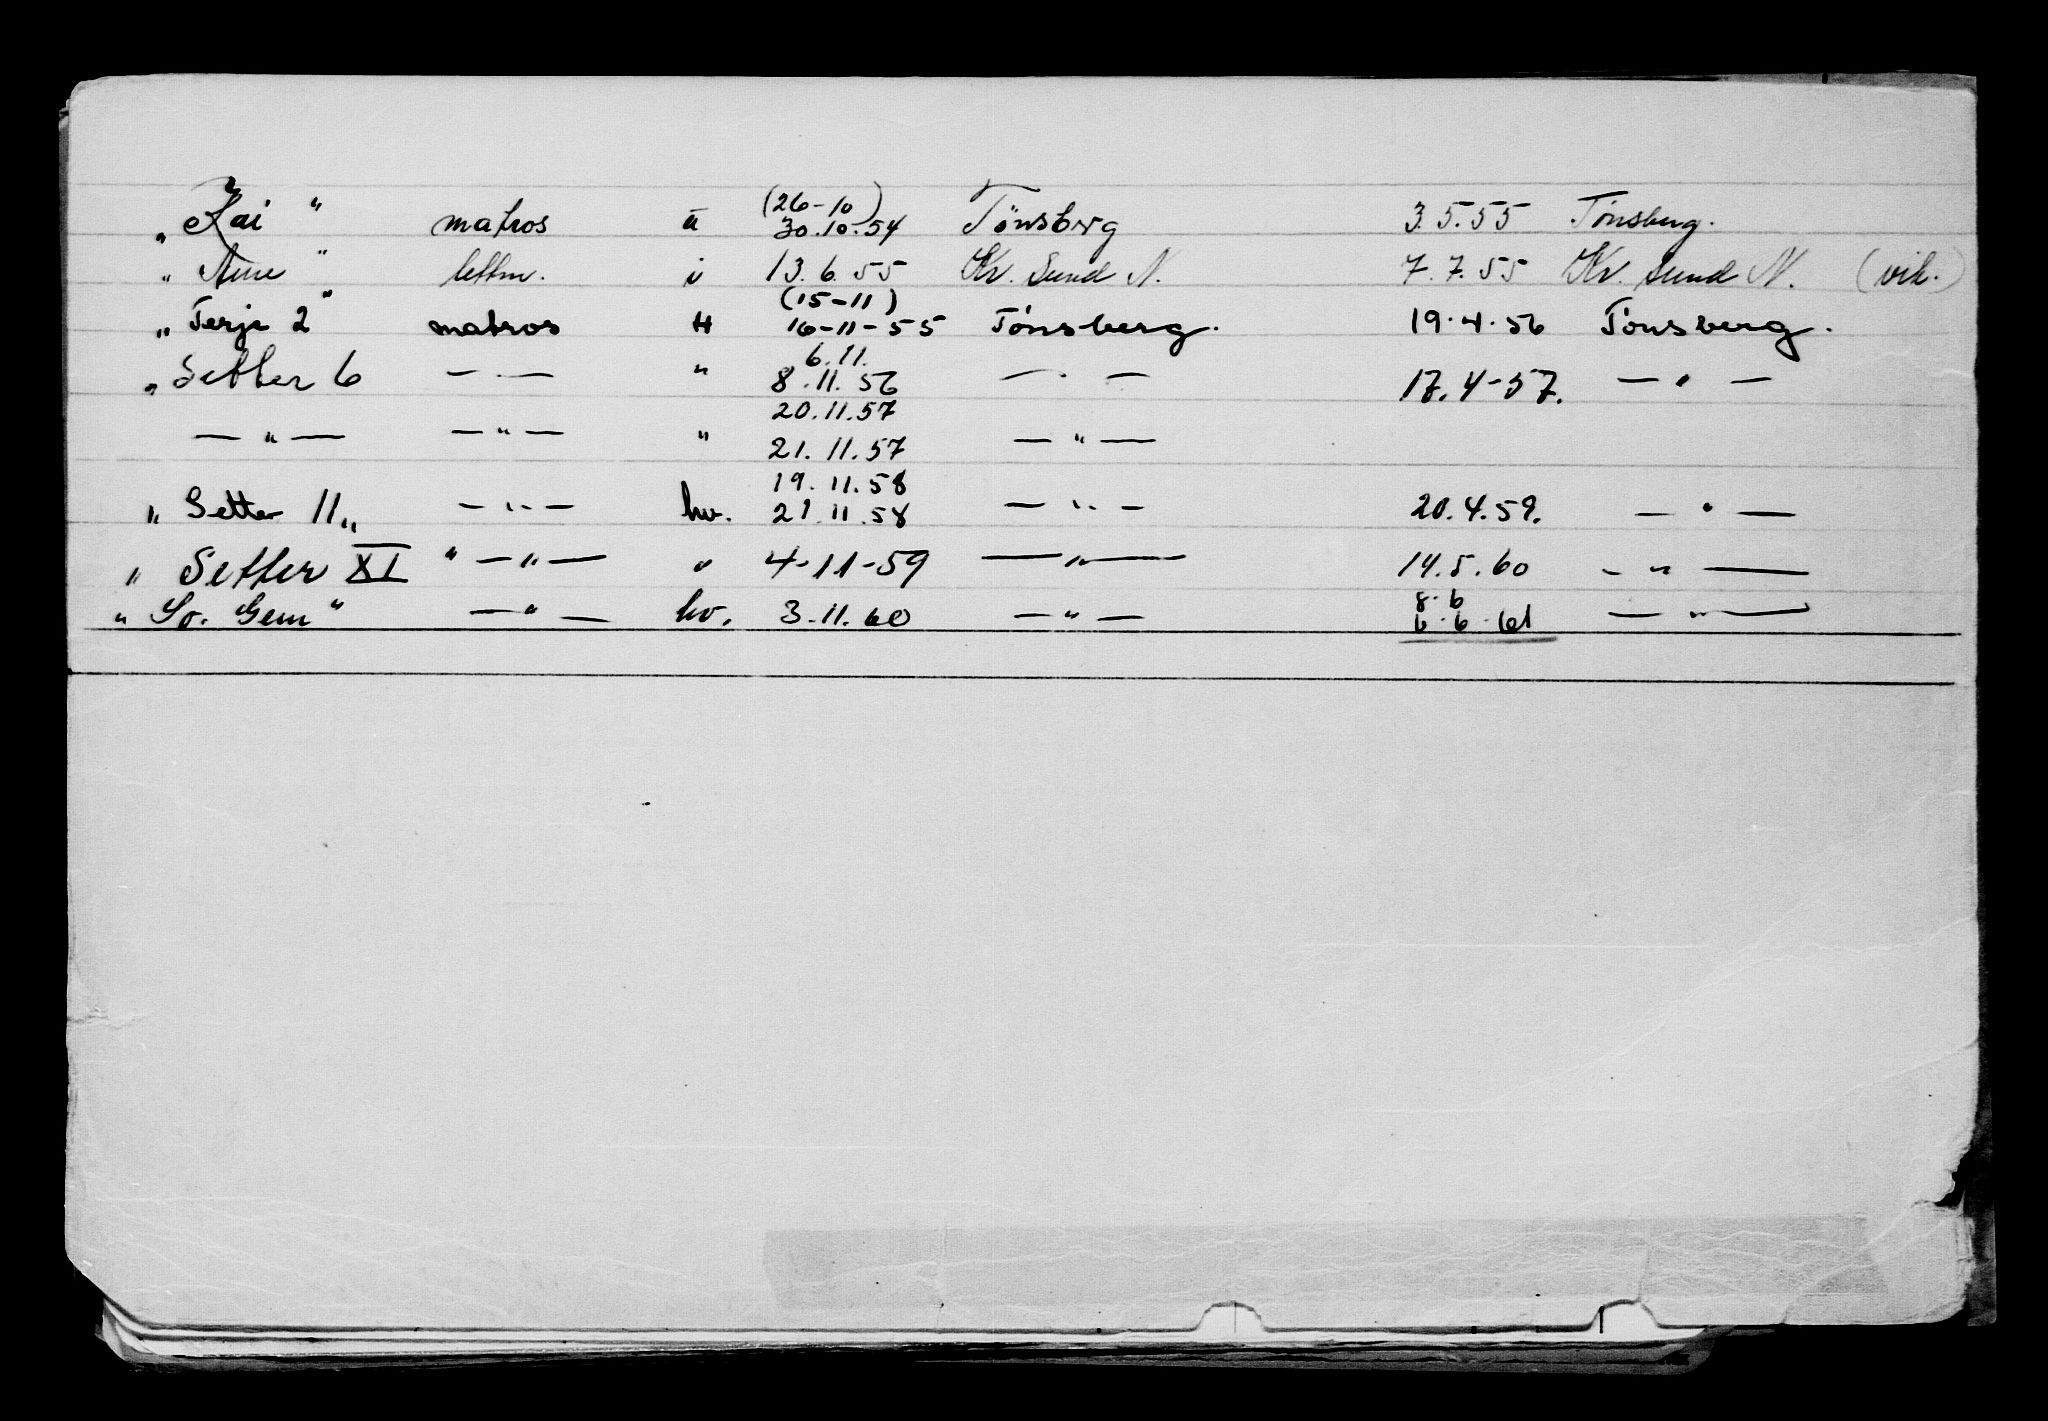 „ Kai " matros u (26-10) 30.10.54 Tönsberg 3.5.55 Tønsberg.
„ Arne " lettm. i 13.6.55 Kr. Sund N. 7.7.55 Kr. sund N. (vik.)
„ Terje 2" matros H (15-11) 16-11-55 Tönsberg. 19.4.56 Tönsberg.
„ Setter 6 — . — " 6.11. 8.11.56 — . — 17.4-57. — " —
— " — — " — " 20.11.57 21.11.57 — " —
„ Setter 11 „ — " — hv. 19.11.58 21.11.58 — " — 20.4.59. — " —
„ Setter XI " — " — " 4-11-59 — " — 14.5.60 — " —
„ So. Gem " — " — hv. 3.11.60 — " — 8.6 6.6.61 — " —